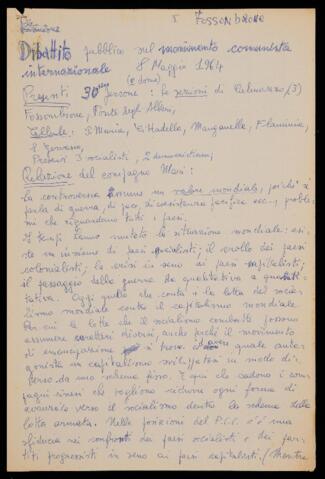 I Fossombrone
Riunione
Dibattito pubblico sul movimento comunista
internazionale 8 Maggio 1964
(2 donne)
Presenti 30 persone: le sezioni di Calmazzo, (3)
Fossombrone, Ponte degli Alberi,
Cellule: S. Maria, Cittadella, Manganelle, Flaminia,
S. Gervasio,
Presenti 3 socialisti, 2 democristiani,
Relazione del compagno Mari:
La controversia assume un valore mondiale, poiché si
parla di guerra, di pace, di coesistenza pacifica ecc., proble-
mi che riguardano tutti i paesi.
I tempi hanno mutato la situazione mondiale: esi-
ste un insieme di paesi socialisti; il crollo dei paesi
colonialisti; la crisi in seno ai paesi capitalisti;
il passaggio della guerra da qualitativa a quantit-
tativa. Oggi quello che conta è la lotta del socia-
lismo mondiale contro il capitalismo mondiale
Per cui le lotte che il socialismo combatte possono
assumere caratteri diversi, anche perché il movimento
di emancipazione si trova davanti quale anta-
gonista un capitalismo sviluppatosi in modo di-
verso da uno schema fisso. E qui che cadono i com-
pagni cinesi che vogliono ridurre ogni forma di
avanzata verso il socialismo dentro lo schema della
lotta armata. Nelle posizioni del P.C.C. c'è una
sfiducia nei confronti dei paesi socialisti e dei par-
titi progressisti in seno ai paesi capitalisti. (Mentre